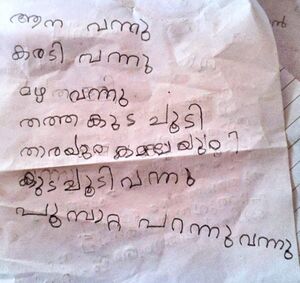 ആന വന്നു
കരടി വന്നു
മഴ വന്നു
തത്ത കുട ചൂടി
താരയും
കുട ചൂടി വന്നു
പൂമ്പാറ്റ പറന്നു വന്നു